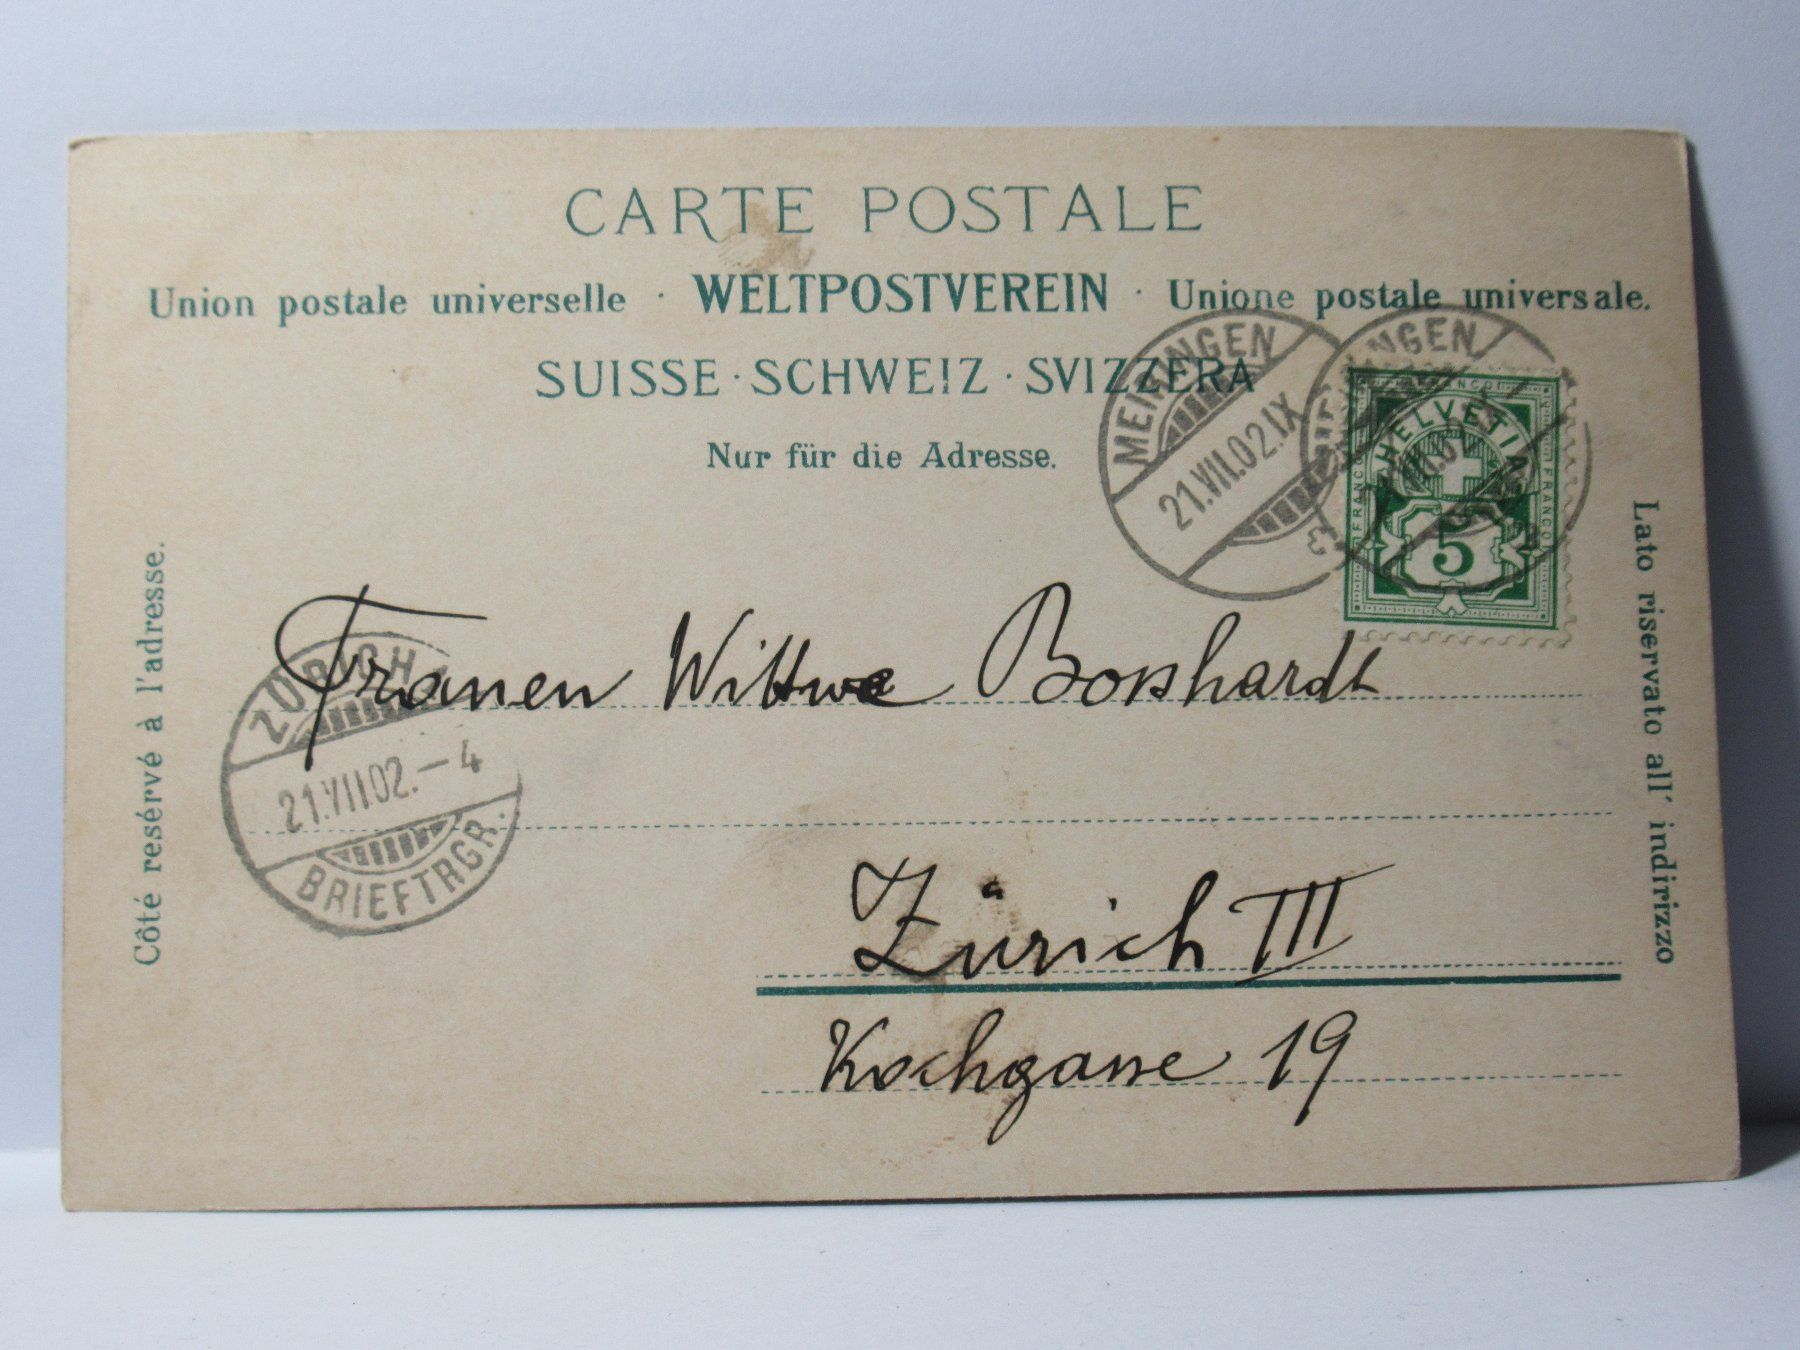 CARTE POSTALE
Union postale universelle · WELTPOSTVEREIN · Unione postale universale.
SUISSE · SCHWEIZ · SVIZZERA
Nur für die Adresse.
MEIRINGEN
21.VII.02.IX
MEIRINGEN
HELVETIA
FRANCO
FRANCO
5
Côté resérvé à l'adresse.
Lato riservato all' indirizzo
ZÜRICH
21.VII02.-4
BRIEFTRGR.
Frauen Wittwe Bosshardt
Zürich III
Kochgasse 19